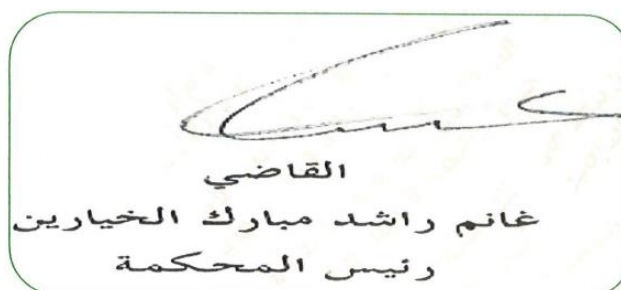 القاضي
غانم راشد مبارك الخيارين
رئيس المحكمة